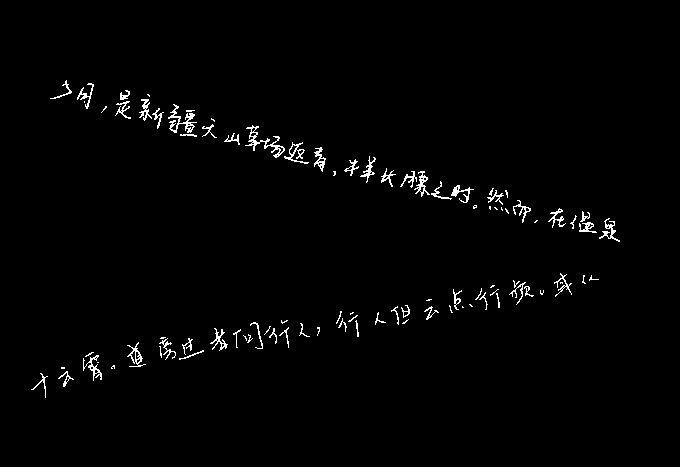 5月，是新疆天山草场返青，牛羊长膘之时。然而，在温泉
干云霄。道旁过者问行人，行人但云点行频。或从